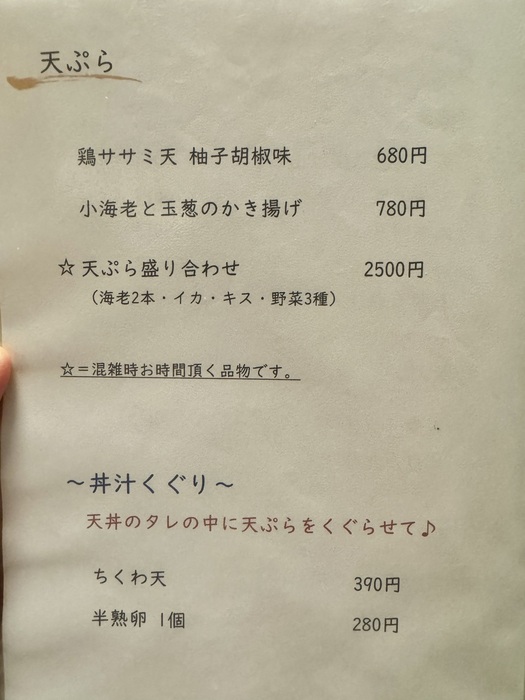 天ぷら
鶏ササミ天 柚子胡椒味 680円
小海老と玉葱のかき揚げ 780円
☆天ぷら盛り合わせ 2500円
（海老2本・イカ・キス・野菜3種）
☆＝混雑時お時間頂く品物です。
〜丼汁くぐり〜
天丼のタレの中に天ぷらをくぐらせて♪
ちくわ天 390円
半熟卵 1個 280円